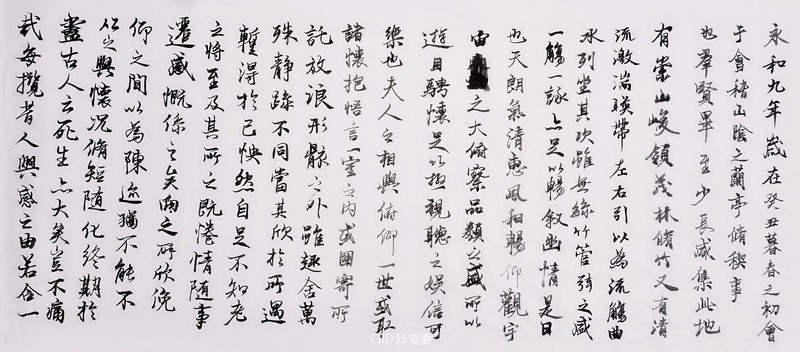 永和九年歲在癸丑暮春之初會
于會稽山陰之蘭亭脩稧事
也羣賢畢至少長咸集此地
有崇山峻領茂林脩竹又有清
流激湍暎帶左右引以為流觴曲
水列坐其次雖無絲竹管弦之盛
一觴一詠亦足以暢敘幽情是日
也天朗氣清惠風和暢仰觀宇
宙之大俯察品類之盛所以
遊目騁懷足以極視聽之娛信可
樂也夫人之相與俯仰一世或取
諸懷抱悟言一室之內或因寄所
託放浪形骸之外雖趣舍萬
殊靜躁不同當其欣於所遇
暫得於己怏然自足不知老
之將至及其所之既惓情隨事
遷感慨係之矣向之所欣俛
仰之間以為陳迹猶不能不
以之興懷況脩短隨化終期於
盡古人云死生亦大矣豈不痛
哉每攬昔人興感之由若合一